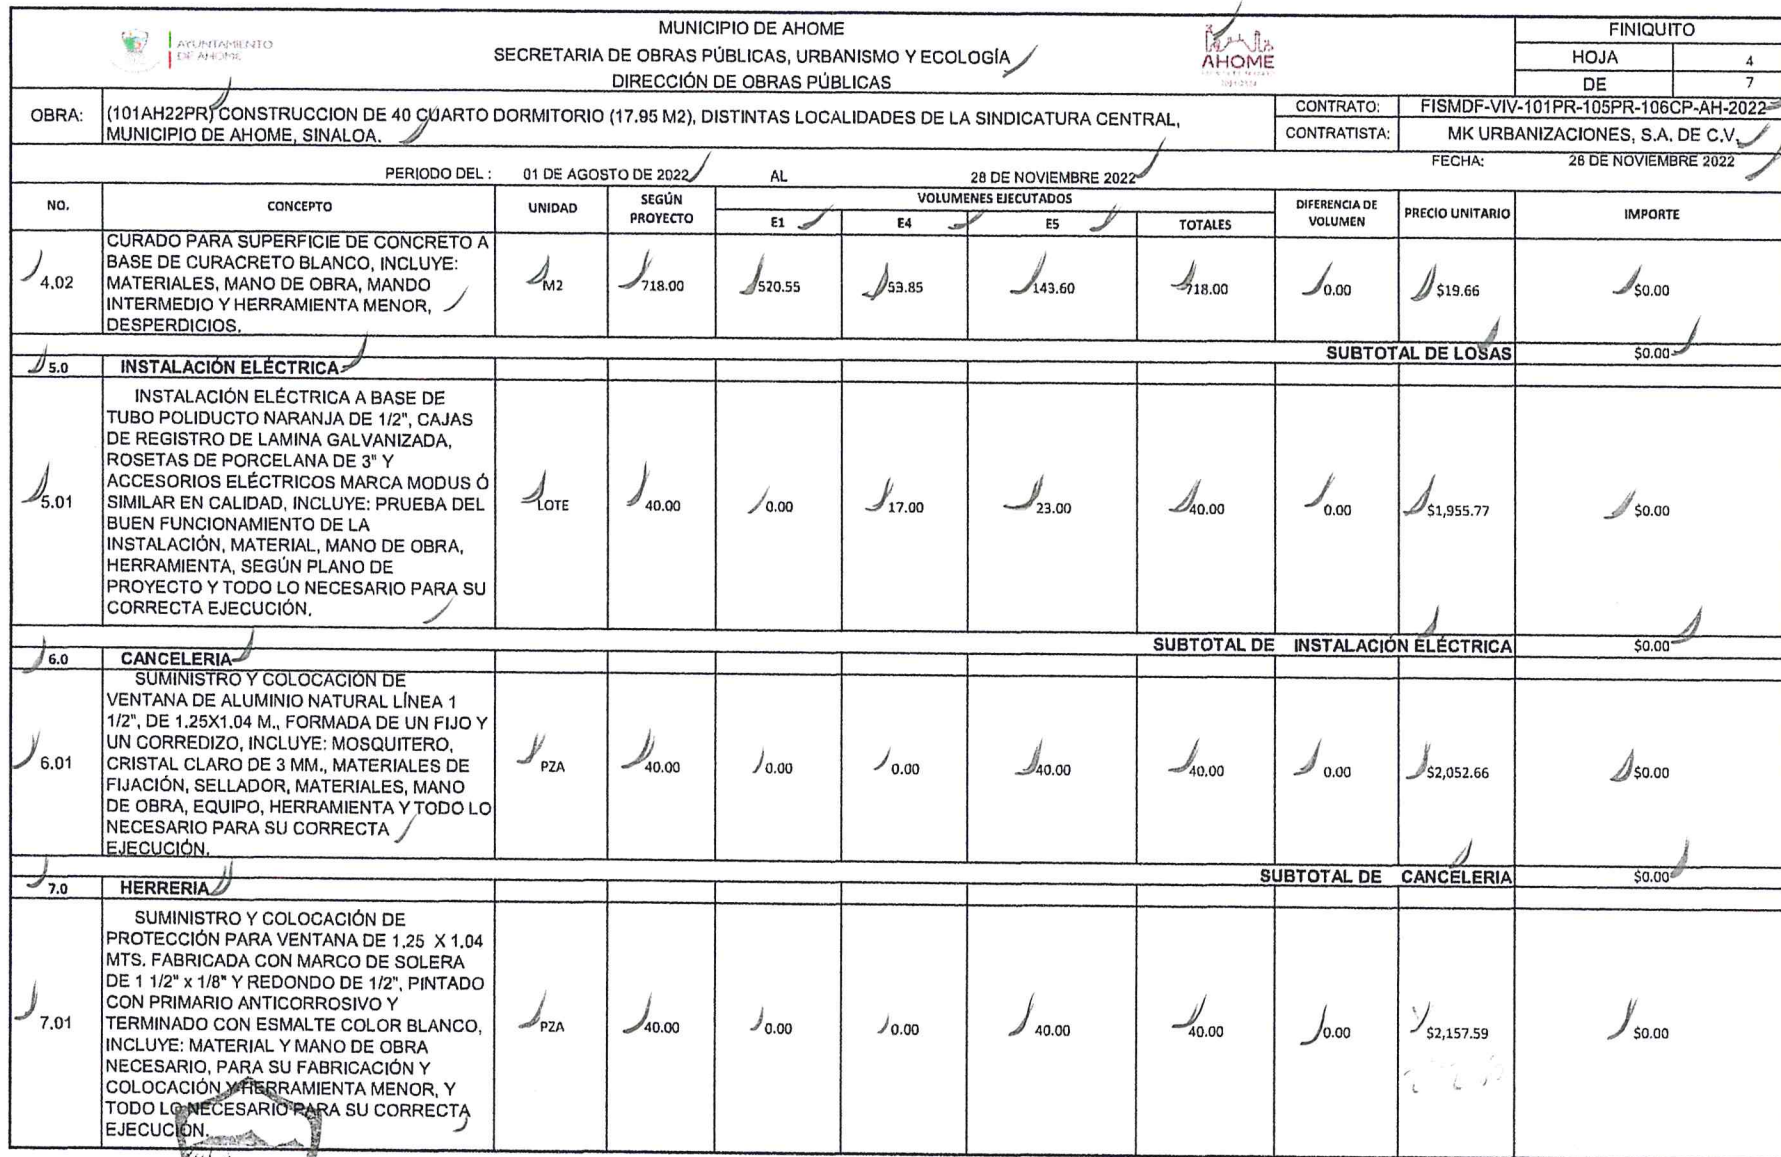 AYUNTAMIENTO
DE AHOME
MUNICIPIO DE AHOME
SECRETARIA DE OBRAS PÚBLICAS, URBANISMO Y ECOLOGÍA
DIRECCIÓN DE OBRAS PÚBLICAS
AHOME
FINIQUITO
HOJA 4
DE 7
OBRA: (101AH22PR) CONSTRUCCION DE 40 CUARTO DORMITORIO (17.95 M2), DISTINTAS LOCALIDADES DE LA SINDICATURA CENTRAL,
MUNICIPIO DE AHOME, SINALOA.
CONTRATO: FISMDF-VIV-101PR-105PR-106CP-AH-2022
CONTRATISTA: MK URBANIZACIONES, S.A. DE C.V.
FECHA: 28 DE NOVIEMBRE 2022
PERIODO DEL : 01 DE AGOSTO DE 2022 AL 28 DE NOVIEMBRE 2022
NO. CONCEPTO UNIDAD SEGÚN PROYECTO VOLUMENES EJECUTADOS DIFERENCIA DE VOLUMEN PRECIO UNITARIO IMPORTE
E1 E4 E5 TOTALES
CURADO PARA SUPERFICIE DE CONCRETO A
BASE DE CURACRETO BLANCO, INCLUYE:
MATERIALES, MANO DE OBRA, MANDO
INTERMEDIO Y HERRAMIENTA MENOR,
DESPERDICIOS.
4.02 M2 718.00 520.55 53.85 143.60 718.00 0.00 $19.66 $0.00
SUBTOTAL DE LOSAS $0.00
5.0 INSTALACIÓN ELÉCTRICA
INSTALACIÓN ELÉCTRICA A BASE DE
TUBO POLIDUCTO NARANJA DE 1/2", CAJAS
DE REGISTRO DE LAMINA GALVANIZADA,
ROSETAS DE PORCELANA DE 3" Y
ACCESORIOS ELÉCTRICOS MARCA MODUS Ó
SIMILAR EN CALIDAD, INCLUYE: PRUEBA DEL
BUEN FUNCIONAMIENTO DE LA
INSTALACIÓN, MATERIAL, MANO DE OBRA,
HERRAMIENTA, SEGÚN PLANO DE
PROYECTO Y TODO LO NECESARIO PARA SU
CORRECTA EJECUCIÓN.
5.01 LOTE 40.00 0.00 17.00 23.00 40.00 0.00 $1,955.77 $0.00
SUBTOTAL DE INSTALACIÓN ELÉCTRICA $0.00
6.0 CANCELERIA
SUMINISTRO Y COLOCACIÓN DE
VENTANA DE ALUMINIO NATURAL LÍNEA 1
1/2", DE 1.25X1.04 M., FORMADA DE UN FIJO Y
UN CORREDIZO, INCLUYE: MOSQUITERO,
CRISTAL CLARO DE 3 MM., MATERIALES DE
FIJACIÓN, SELLADOR, MATERIALES, MANO
DE OBRA, EQUIPO, HERRAMIENTA Y TODO LO
NECESARIO PARA SU CORRECTA
EJECUCIÓN.
6.01 PZA 40.00 0.00 0.00 40.00 40.00 0.00 $2,052.66 $0.00
SUBTOTAL DE CANCELERIA $0.00
7.0 HERRERIA
SUMINISTRO Y COLOCACIÓN DE
PROTECCIÓN PARA VENTANA DE 1.25 X 1.04
MTS. FABRICADA CON MARCO DE SOLERA
DE 1 1/2" x 1/8" Y REDONDO DE 1/2", PINTADO
CON PRIMARIO ANTICORROSIVO Y
TERMINADO CON ESMALTE COLOR BLANCO,
INCLUYE: MATERIAL Y MANO DE OBRA
NECESARIO, PARA SU FABRICACIÓN Y
COLOCACIÓN Y HERRAMIENTA MENOR, Y
TODO LO NECESARIO PARA SU CORRECTA
EJECUCIÓN.
7.01 PZA 40.00 0.00 0.00 40.00 40.00 0.00 $2,157.59 $0.00